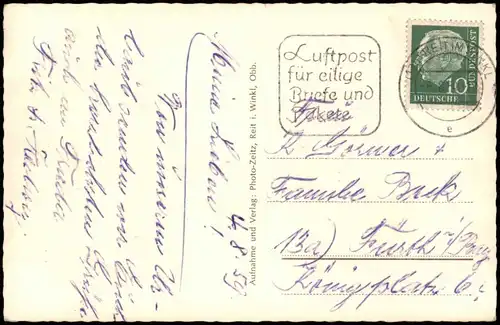 Meine Lieben!
4.8.59
Von unserem Ur-
laub senden wir Euch
die herzlichsten Grüße
auch an
Aufnahme und Verlag: Photo-Zeitz, Reit i. Winkl, Obb.
Luftpost
für eilige
Briefe und
Pakete
REIT IM WINKL
e
DEUTSCHE
BUNDESPOST
10
Frau
R. Görner +
Familie
13a) Fürth i/Bay
Königsplatz 6.